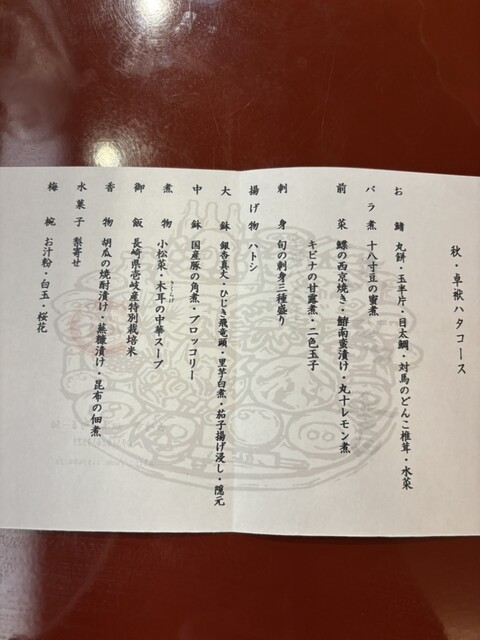 秋・卓袱ハタコース
お鰭 丸餅・玉半片・目太鯛・対馬のどんこ椎茸・水菜
バラ煮 十八寸豆の蜜煮
前菜 鰈の西京焼き・鯖南蛮漬け・丸十レモン煮
キビナの甘露煮・二色玉子
刺身 旬の刺身三種盛り
揚げ物 ハトシ
大鉢 銀杏真丈・ひじき飛竜頭・里芋白煮・茄子揚げ浸し・隠元
中鉢 国産豚の角煮・ブロッコリー
煮物 小松菜・木耳の中華スープ
きくらげ
御飯 長崎県壱岐産特別栽培米
香物 胡瓜の焼酎漬け・蕪糠漬け・昆布の佃煮
水菓子 梨寄せ
梅椀 お汁粉・白玉・桜花